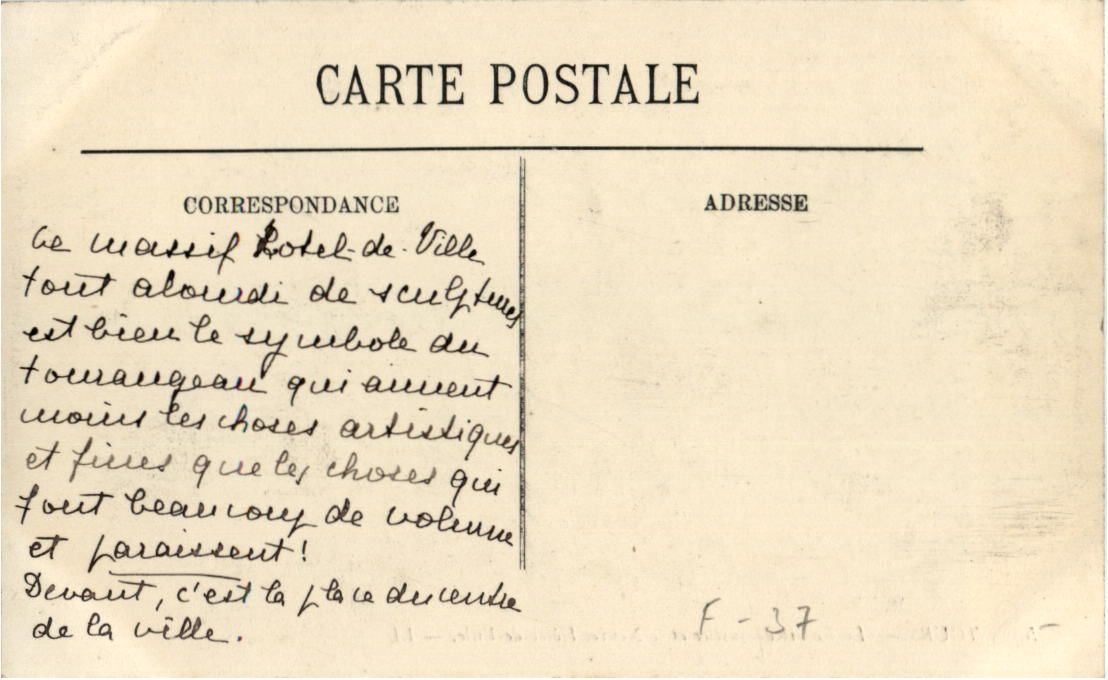 CARTE POSTALE
CORRESPONDANCE
ADRESSE
Le massif Hotel-de-Ville
tout alourdi de sculptures
est bien le symbole du
tourangeau qui aiment
moins les choses artistiques
et fines que les choses qui
font beaucoup de volume
et paraissent!
Devant, c'est la place du centre
de la ville.
F - 37